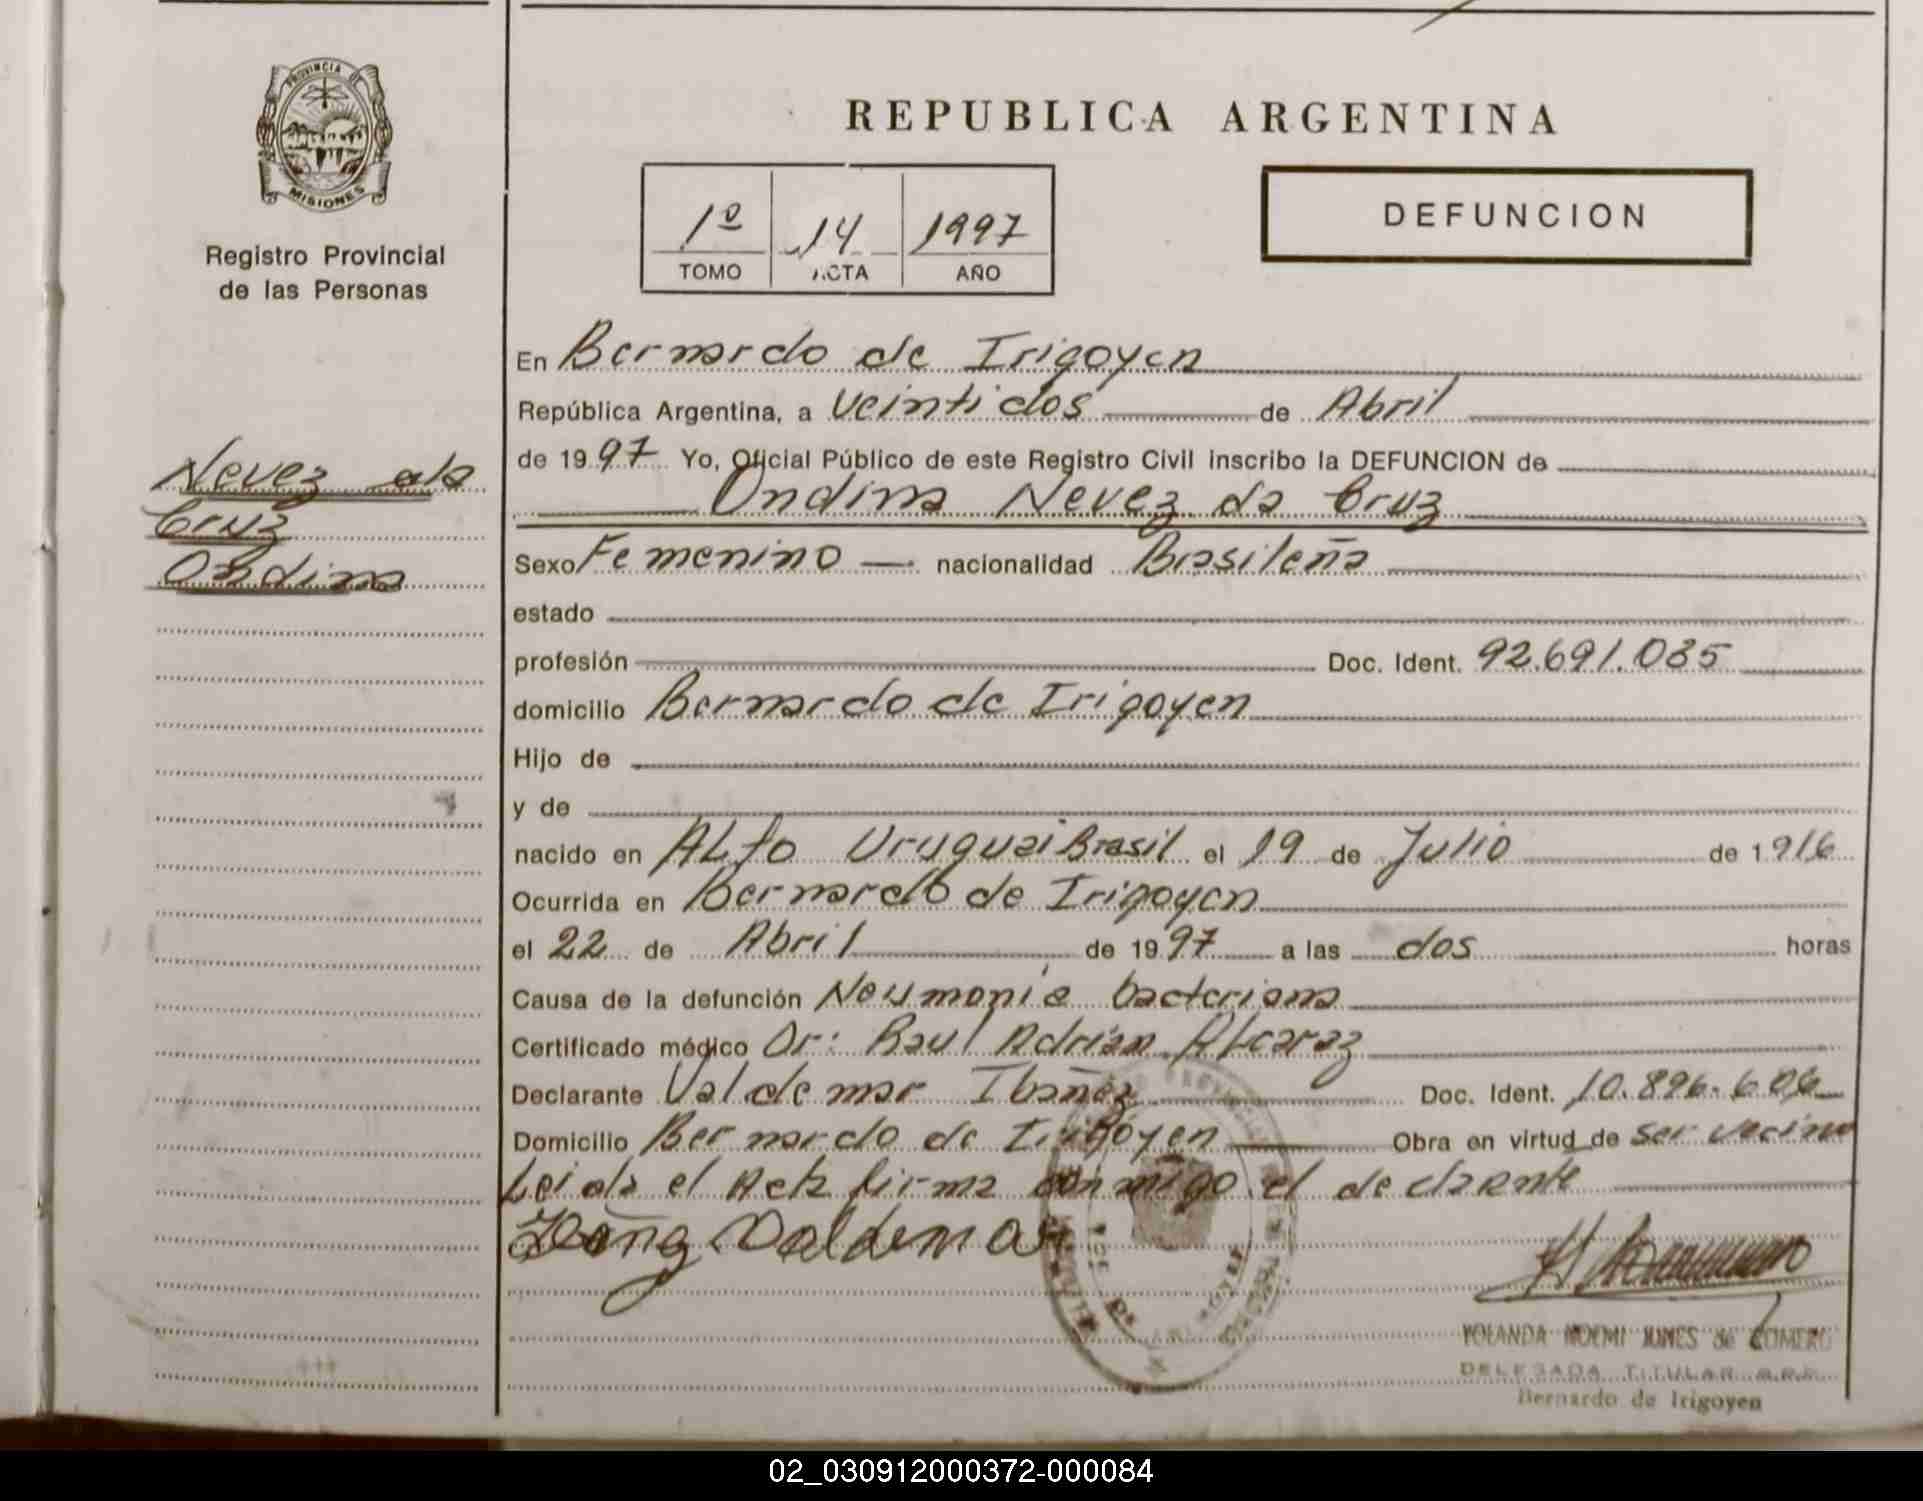 PROVINCIA
MISIONES
Registro Provincial
de las Personas
Nevez da
Cruz
Ondina
REPUBLICA ARGENTINA
1º 14 1997
TOMO ACTA AÑO
DEFUNCION
En Bernardo de Irigoyen
República Argentina, a veintidos de Abril
de 1997 Yo, Oficial Público de este Registro Civil inscribo la DEFUNCION de
Ondina Nevez da Cruz
Sexo Femenino — nacionalidad Brasileña
estado
profesión Doc. Ident. 92.691.035
domicilio Bernardo de Irigoyen
Hijo de
y de
nacido en Alto Uruguai Brasil el 19 de Julio de 1916
Ocurrida en Bernardo de Irigoyen
el 22 de Abril de 1997 a las dos horas
Causa de la defunción Neumonía bacteriana
Certificado médico Dr: Raul Adrián Alcaraz
Declarante Valdemar Ibañez Doc. Ident. 10.896.606
Domicilio Bernardo de Irigoyen Obra en virtud de ser vecino
Leida el Acta firma conmigo el declarante
Valdemar
YOLANDA NOEMI JUNES de ROMERO
DELEGADA TITULAR R.P.P.
Bernardo de Irigoyen
02_030912000372-000084